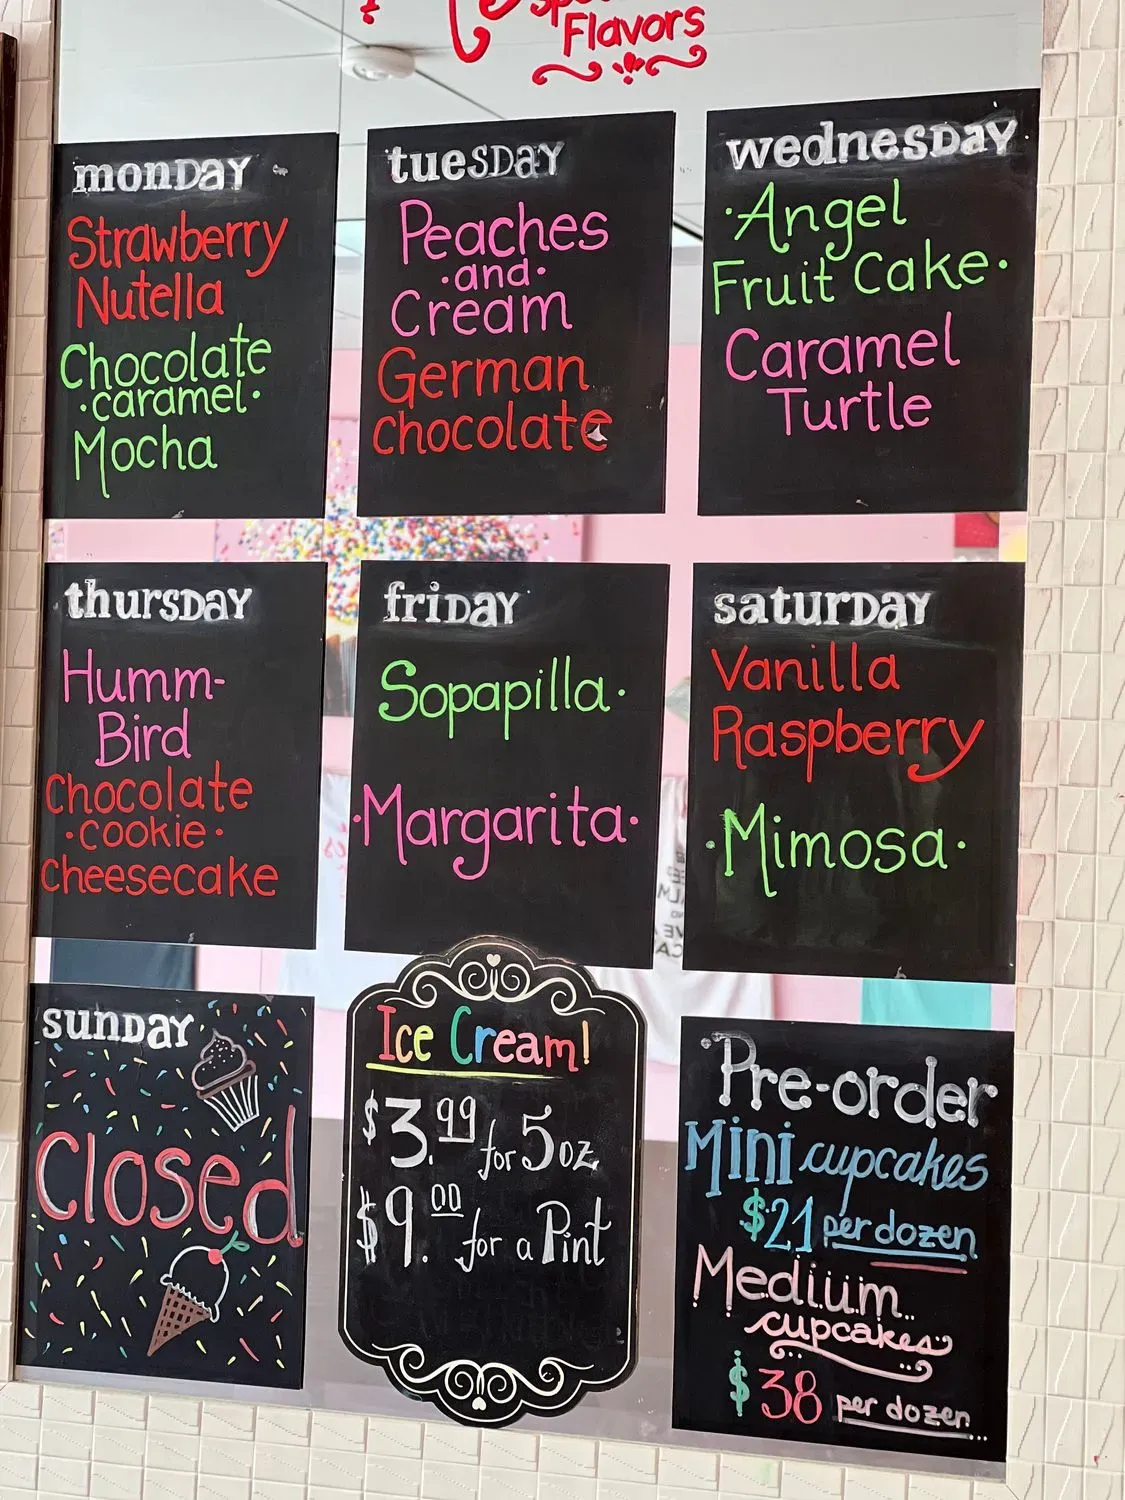 Flavors
monDAY
Strawberry
Nutella
Chocolate
·caramel·
Mocha
tuesDAY
Peaches
·and·
Cream
German
chocolate
wednesDAY
·Angel
Fruit Cake·
Caramel
Turtle
thursDAY
Humm-
Bird
Chocolate
·cookie·
cheesecake
friDAY
Sopapilla·
·Margarita·
saturDAY
Vanilla
Raspberry
·Mimosa·
sunDAY
Closed
Ice Cream!
$3.99 for 5oz
$9.00 for a Pint
Pre-order
Mini cupcakes
$21 per dozen
Medium
cupcakes
$38 per dozen